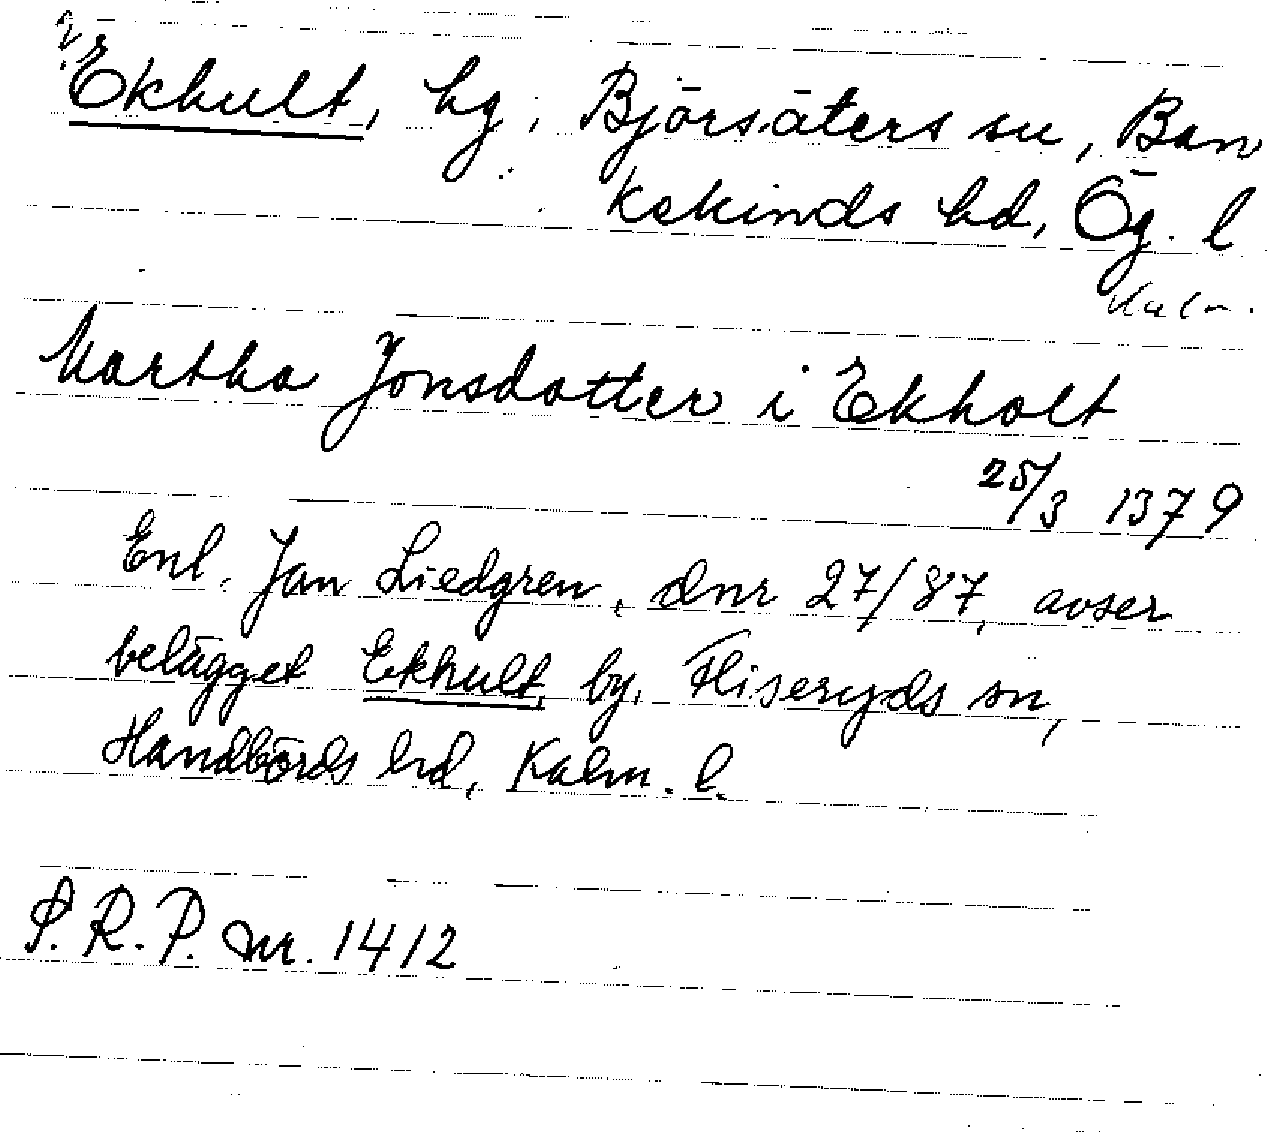 Ekhult, hg, Björsäters sn, Ban
kekinds hd, Ög. l
Kalm.
Martha Jonsdotter i Ekholt
25/3 1379
Enl. Jan Liedgren, dnr 27/87, avser
belägget Ekhult, by, Fliseryds sn,
Handbörds hd, Kalm. l.
S.R.P. nr. 1412